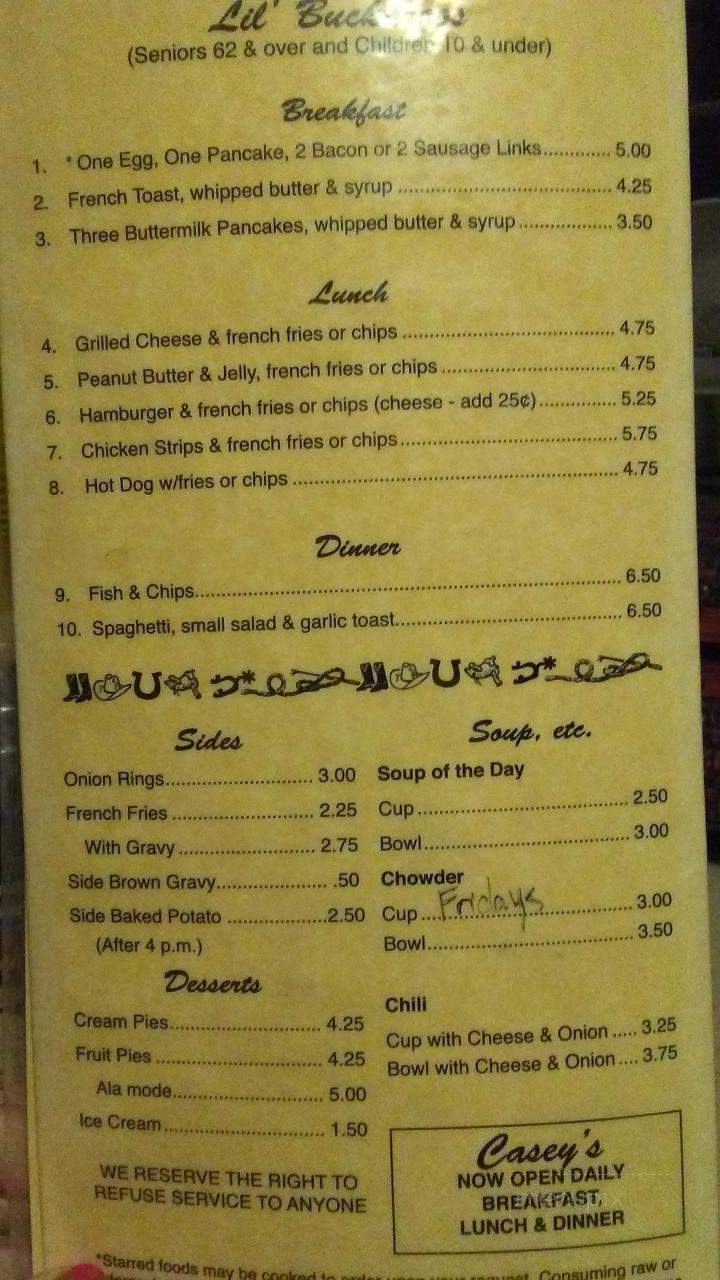 Lil' Buckaroos
(Seniors 62 & over and Children 10 & under)
Breakfast
1. * One Egg, One Pancake, 2 Bacon or 2 Sausage Links............. 5.00
2. French Toast, whipped butter & syrup ........................................ 4.25
3. Three Buttermilk Pancakes, whipped butter & syrup.................. 3.50
Lunch
4. Grilled Cheese & french fries or chips ........................................ 4.75
5. Peanut Butter & Jelly, french fries or chips ................................. 4.75
6. Hamburger & french fries or chips (cheese - add 25¢)............... 5.25
7. Chicken Strips & french fries or chips......................................... 5.75
8. Hot Dog w/fries or chips ............................................................. 4.75
Dinner
9. Fish & Chips................................................................................ 6.50
10. Spaghetti, small salad & garlic toast.......................................... 6.50
Sides
Onion Rings............................ 3.00
French Fries ........................... 2.25
With Gravy .......................... 2.75
Side Brown Gravy..................... .50
Side Baked Potato ...................2.50
(After 4 p.m.)
Desserts
Cream Pies............................. 4.25
Fruit Pies ................................ 4.25
Ala mode............................. 5.00
Ice Cream............................... 1.50
WE RESERVE THE RIGHT TO
REFUSE SERVICE TO ANYONE
Soup, etc.
Soup of the Day
Cup ........................................ 2.50
Bowl........................................ 3.00
Chowder
Fridays
Cup ........................................ 3.00
Bowl........................................ 3.50
Chili
Cup with Cheese & Onion ..... 3.25
Bowl with Cheese & Onion .... 3.75
Casey's
NOW OPEN DAILY
BREAKFAST,
LUNCH & DINNER
*Starred foods may be cooked to order upon your request. Consuming raw or